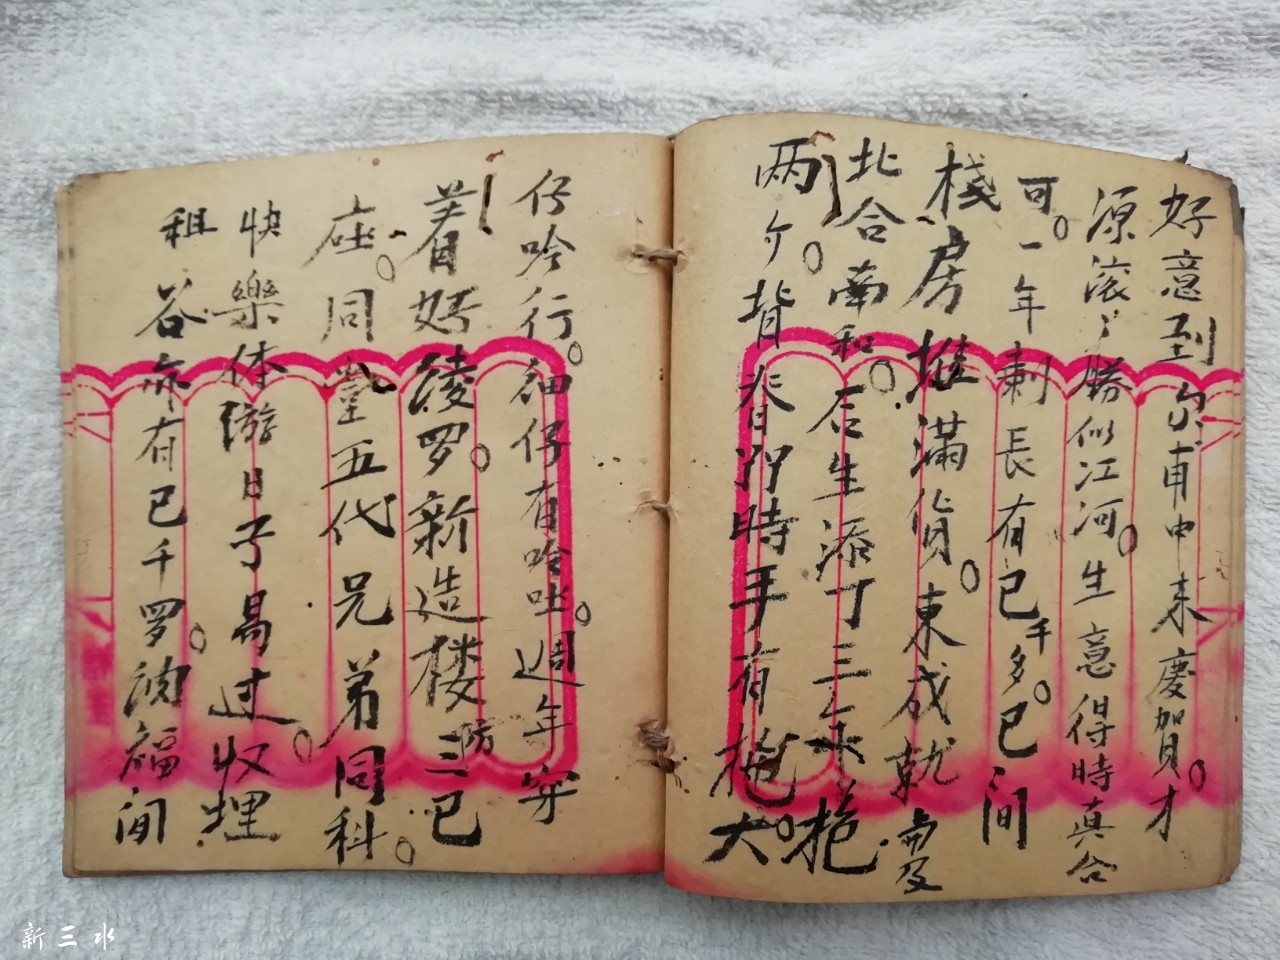 好意到你甫中来慶賀。才
源滚〻勝似江河。生意得時真合
可。一年剩長有已千多。已间
棧房堆滿貨。東成就
北合南和。后生添丁三年抱
两个。背日時手有抱大。
仔吟行。細仔有吟吐。週年穿
着好绫罗。新造楼房三已
座。同堂五代兄弟同科。
快樂体游日子易过。收埋
租谷亦有已千罗。福间
新三水